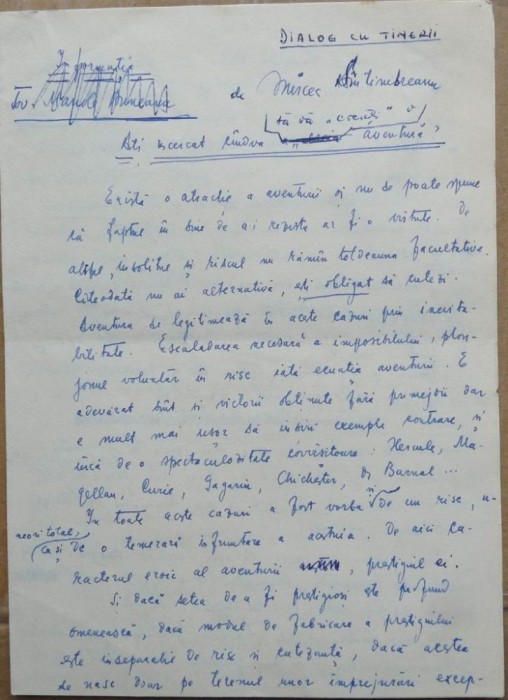 DIALOG CU TINERII
Informația
Tov.
de Mircea Sîntimbreanu
să vă "creați" o
Ați încercat cîndva aventură?
Există o atracție a aventurii și nu se poate spune
că faptul în sine de a-i rezista ar fi o virtute. De
altfel, insolitul și riscul nu rămîn totdeauna facultative.
Cîteodată nu ai alternativă, ești obligat să cutezi.
Aventura se legitimează în aceste cazuri prin inevita-
bilitate. Escaladarea necesară a imposibilului, plon-
jonul voluntar în risc iată ecuația aventurii. E
adevărat sînt și victorii obținute fără primejdii dar
e mult mai ușor să înșiri exemple contrare, și
încă de o spectaculozitate covîrșitoare: Hercule, Ma-
gellan, Curie, Gagarin, Chichester, Dr Barnal ...
In toate aceste cazuri a fost vorba și de un risc, u-
neori total,
ca și de o temerară înfruntare a acestuia. De aici ca-
racterul eroic al aventurii, prestigiul ei.
Și dacă setea de a fi prestigioși este profund
omenească, dacă modul de fabricare a prestigiului
este inseparabil de risc și cutezanță, dacă acestea
se nasc doar pe terenul unor împrejurări excep-